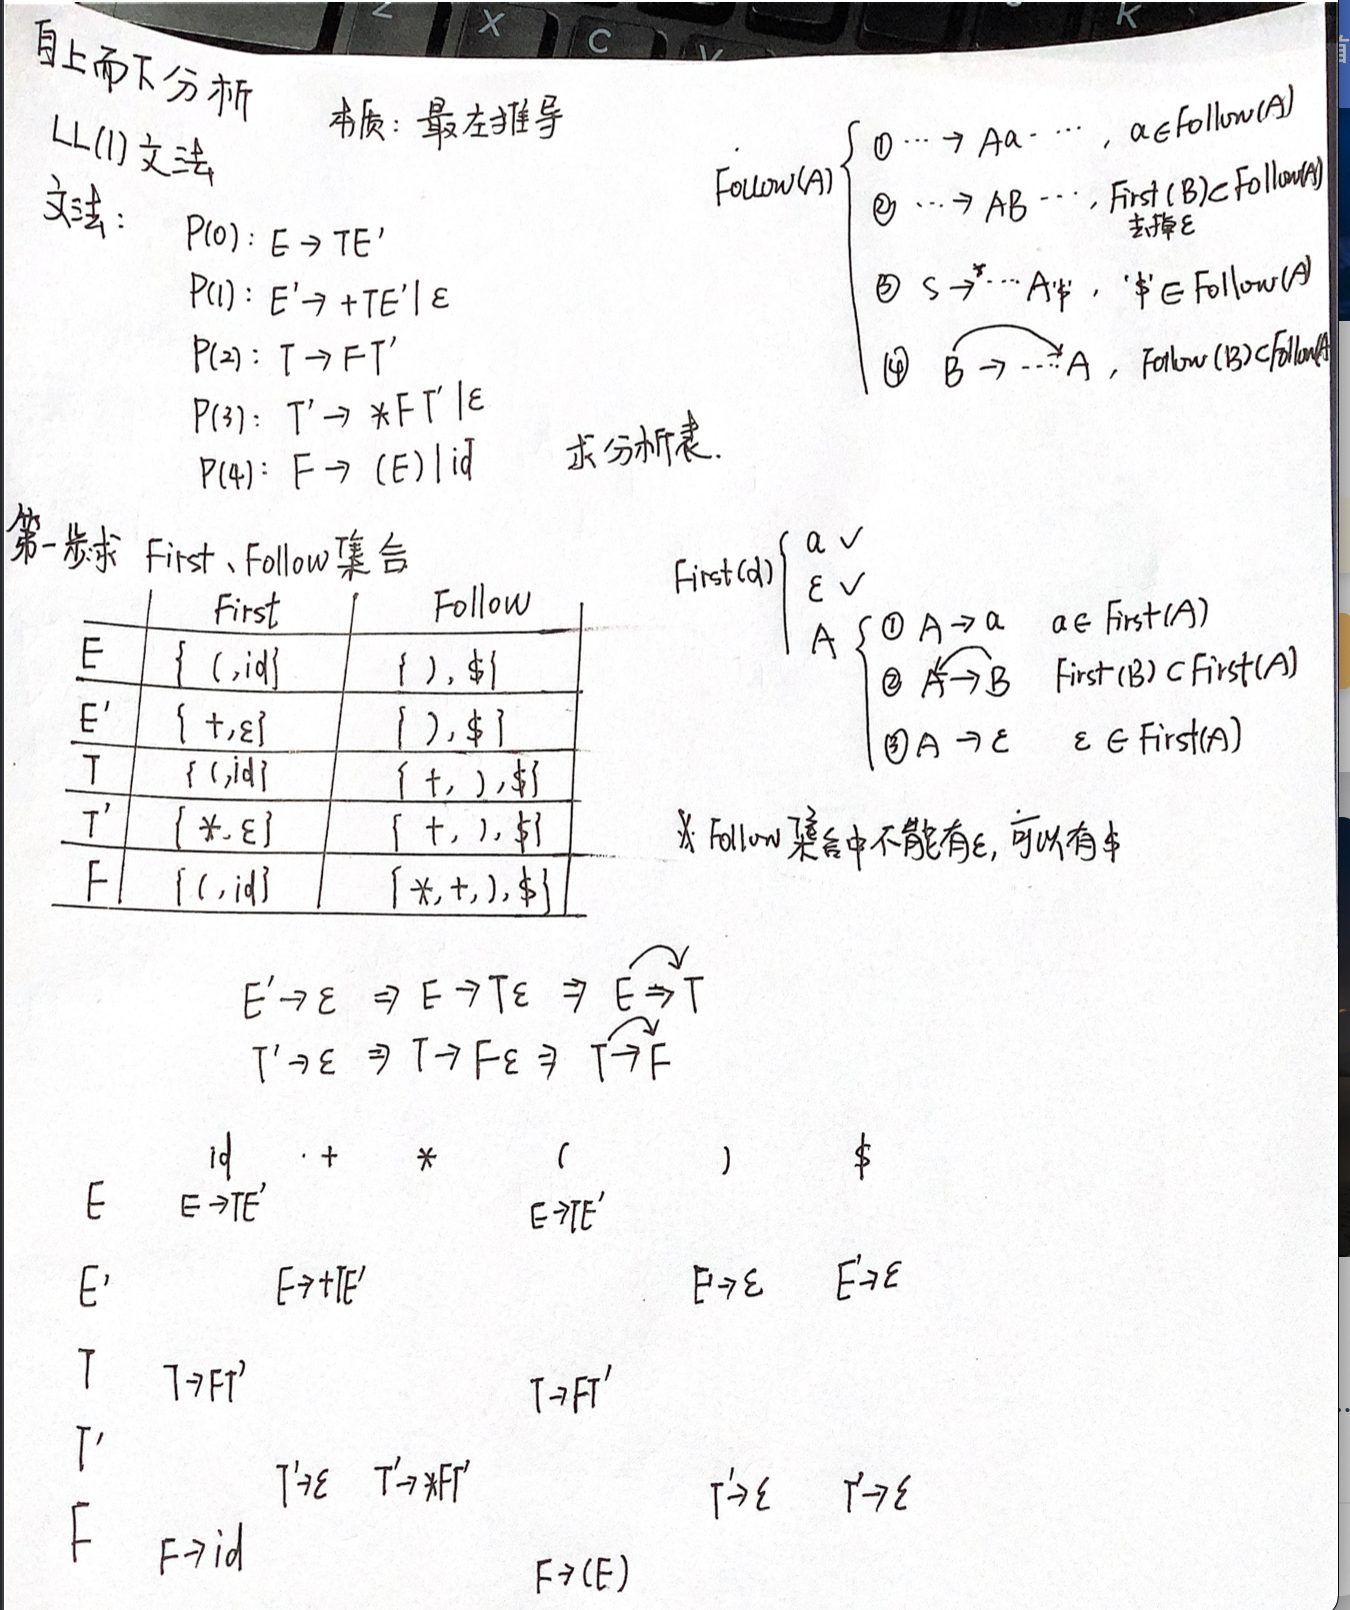 自上而下分析
本质：最左推导
LL(1)文法
文法：
P(0): E → TE'
P(1): E' → +TE' | ε
P(2): T → FT'
P(3): T' → *FT' | ε
P(4): F → (E) | id
求分析表.
Follow(A)
① ··· → Aa ··· , a∈Follow(A)
② ··· → AB ··· , First(B)⊂Follow(A)
去掉ε
③ S →* ··· A'$' , '$' ∈ Follow(A)
④ B → ···· A , Follow(B)⊂Follow(A)
第一步:求 First、Follow集合
First Follow
E { (,id} { ),$}
E' { +,ε} { ),$ }
T { (,id} { +, ),$}
T' { *,ε} { +, ),$}
F { (,id} { *,+,),$}
First(α)
a ✓
ε ✓
A ① A → a a∈ First(A)
② A → B First(B)⊂First(A)
③ A → ε ε ∈ First(A)
※ Follow集合中不能有ε, 可以有$
E' → ε ⇒ E → Tε ⇒ E → T
T' → ε ⇒ T → Fε ⇒ T → F
id + * ( ) $
E E→TE' E→TE'
E' E→+TE' E'→ε E'→ε
T T→FT' T→FT'
T' T'→ε T'→*FT' T'→ε T'→ε
F F→id F→(E)
Z X C V K